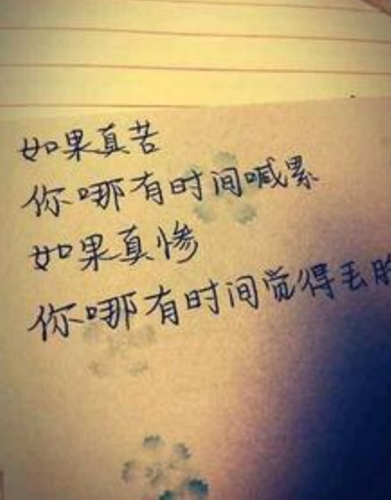 如果真苦
你哪有时间喊累
如果真惨
你哪有时间觉得丢